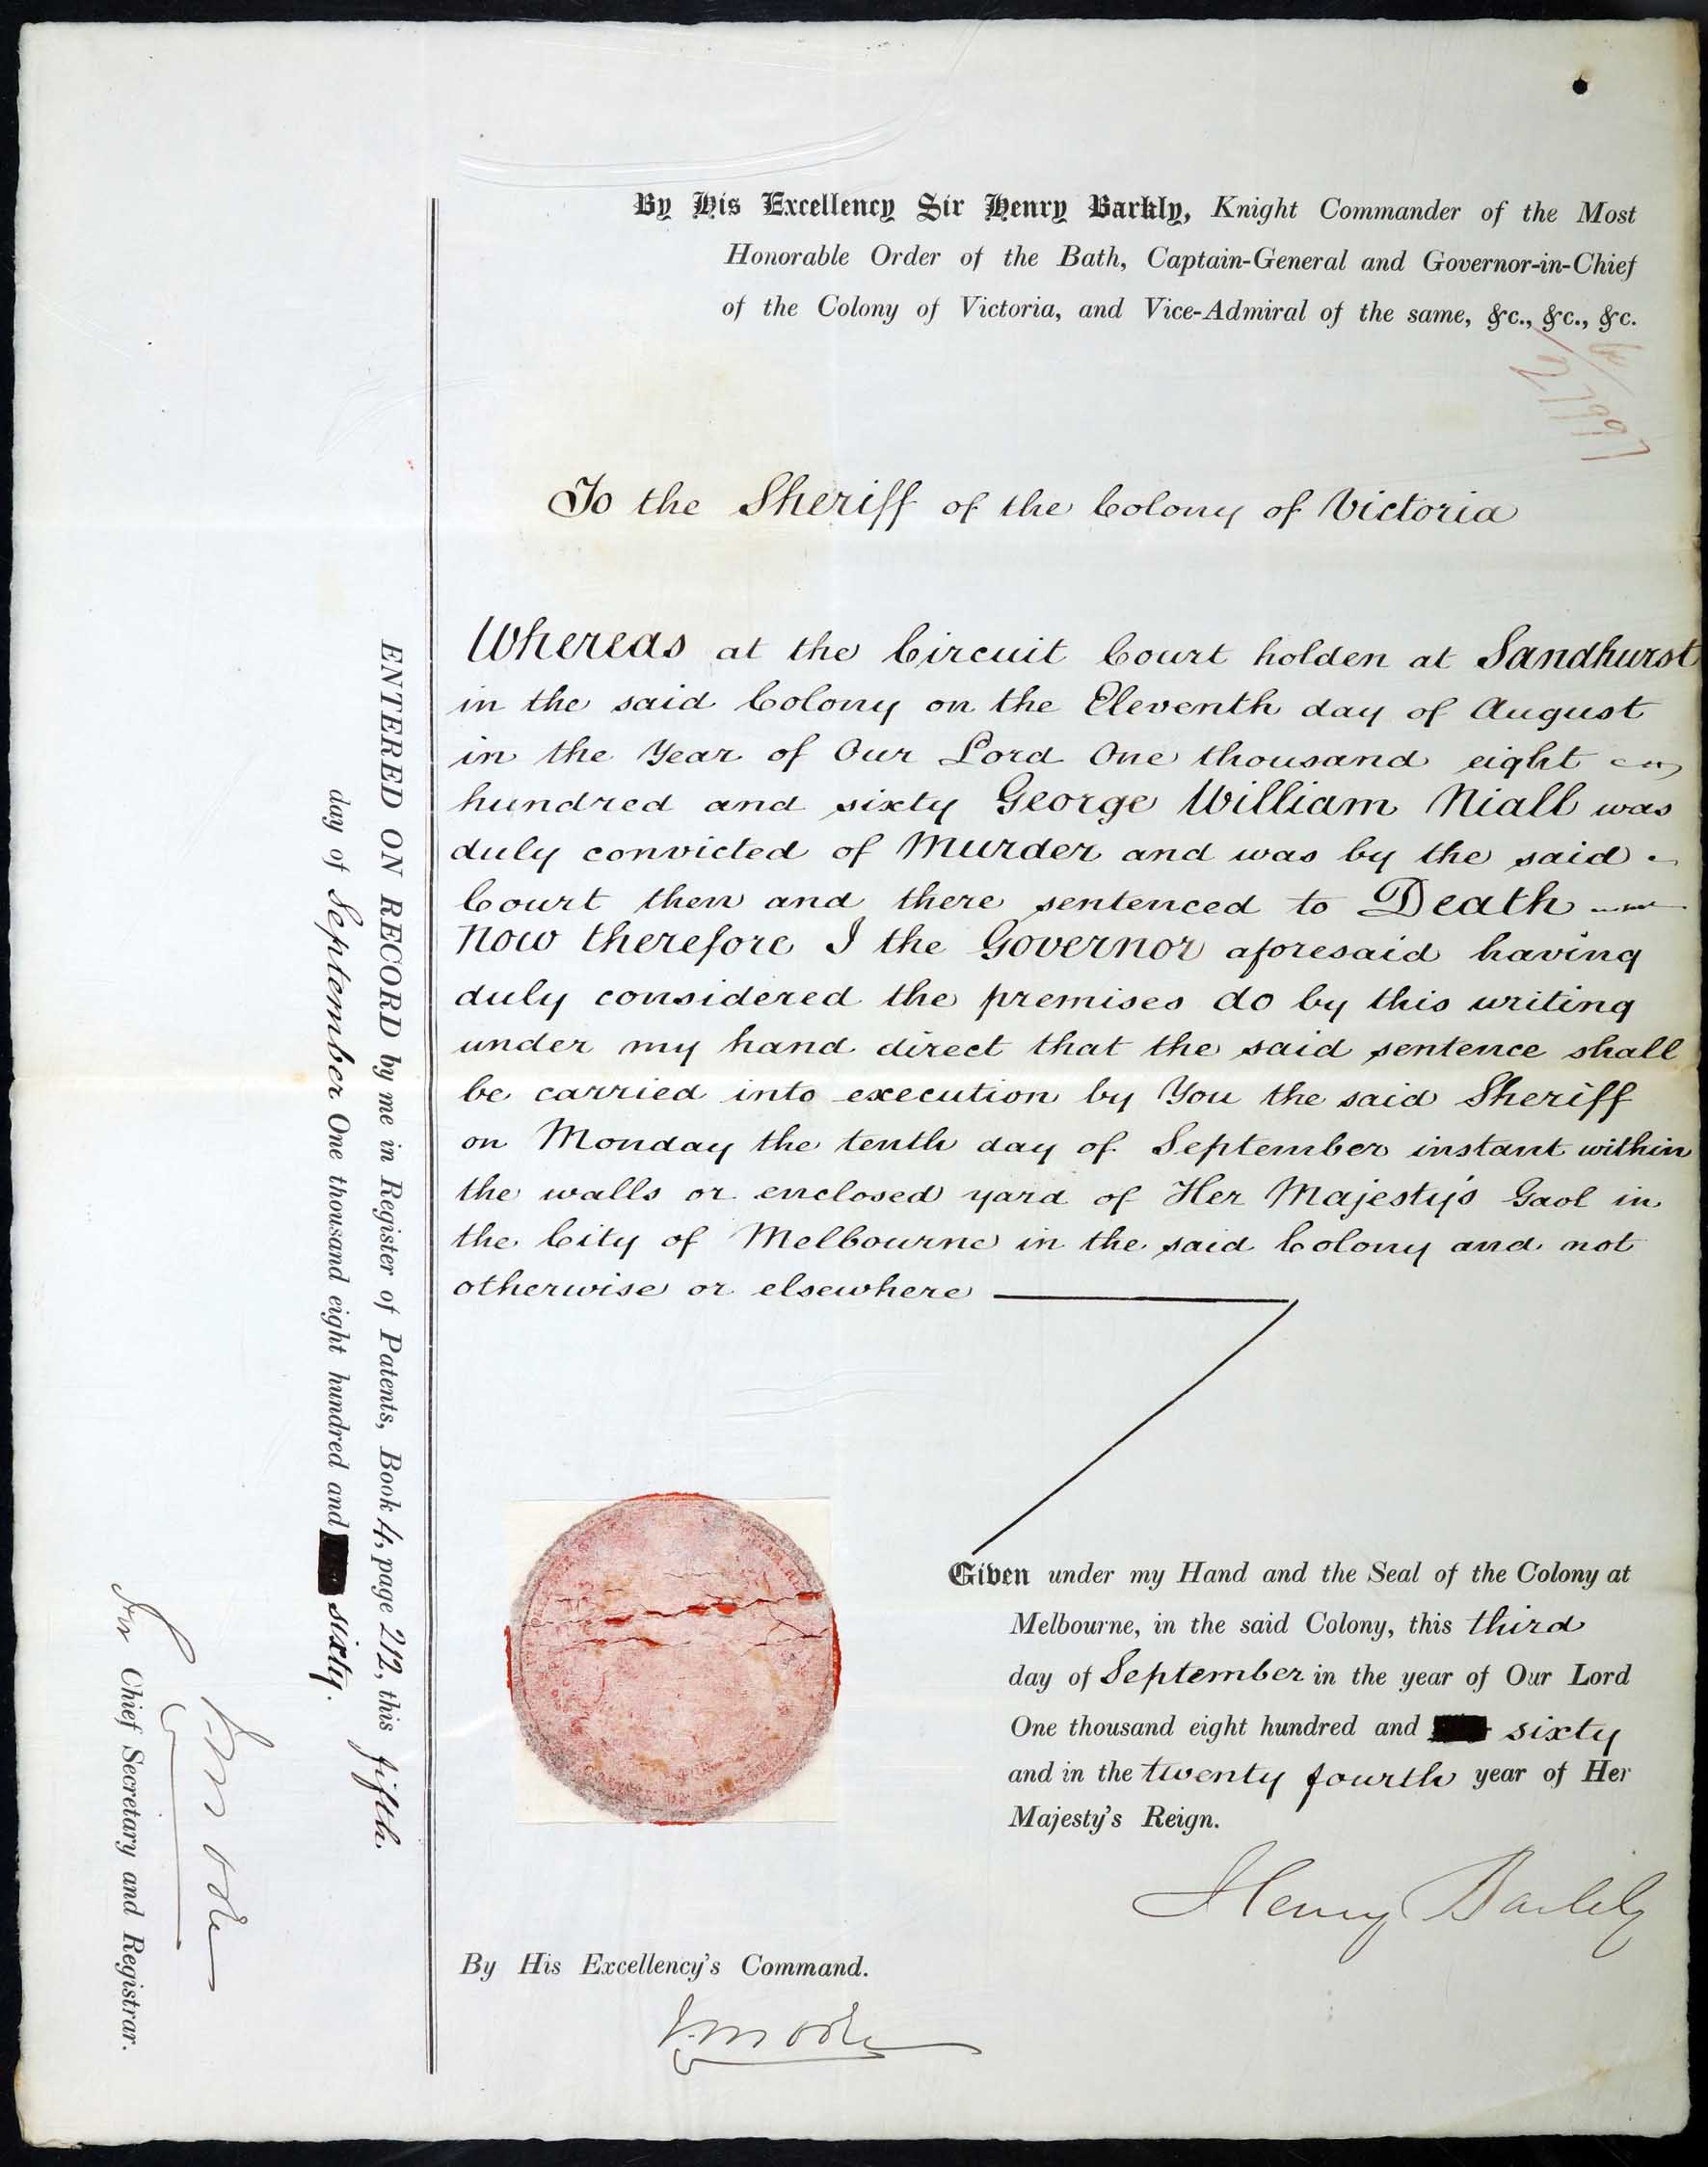 By His Excellency Sir Henry Barkly, Knight Commander of the Most
Honorable Order of the Bath, Captain-General and Governor-in-Chief
of the Colony of Victoria, and Vice-Admiral of the same, &c., &c., &c.
To the Sheriff of the Colony of Victoria
Whereas at the Circuit Court holden at Sandhurst
in the said Colony on the Eleventh day of August
in the Year of Our Lord One thousand eight
hundred and sixty George William Niall was
duly convicted of Murder and was by the said
Court then and there sentenced to Death
Now therefore I the Governor aforesaid having
duly considered the premises do by this writing
under my hand direct that the said sentence shall
be carried into execution by You the said Sheriff
on Monday the tenth day of September instant within
the walls or enclosed yard of Her Majesty's Gaol in
the City of Melbourne in the said Colony and not
otherwise or elsewhere
Given under my Hand and the Seal of the Colony at
Melbourne, in the said Colony, this third
day of September in the year of Our Lord
One thousand eight hundred and sixty
and in the twenty fourth year of Her
Majesty's Reign.
Henry Barkly
By His Excellency's Command.
ENTERED ON RECORD by me in Register of Patents, Book 4, page 212, this fifth
day of September One thousand eight hundred and sixty.
for Chief Secretary and Registrar.